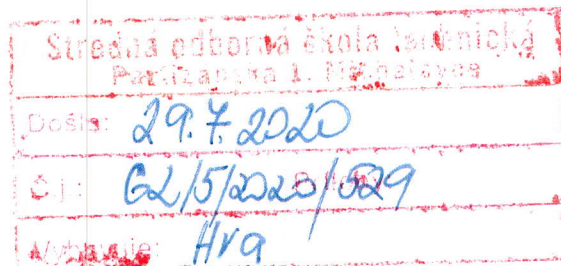 Stredná odborná škola technická
Partizánska 1, Michalovce
Došlo: 29.7.2020
Č.j.: G2/5/2020/529
Vybavuje: Hra